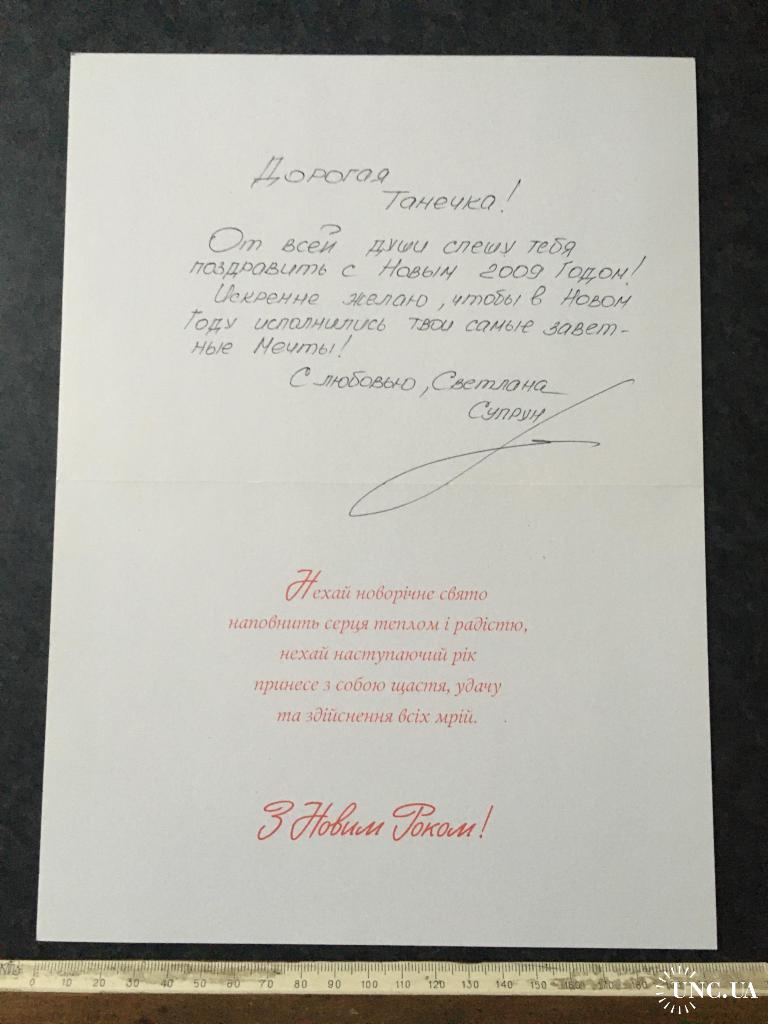 Дорогая
Танечка!
От всей души спешу тебя
поздравить с Новым 2009 Годом!
Искренне желаю, чтобы в Новом
Году исполнились твои самые завет-
ные Мечты!
С любовью, Светлана
Супрун
Нехай новорічне свято
наповнить серця теплом і радістю,
нехай наступаючий рік
принесе з собою щастя, удачу
та здійснення всіх мрій.
З Новим Роком!
0 10 20 30 40 50 60 70 80 90 100 110 120 130 140 150 160 170 180
UNC.UA